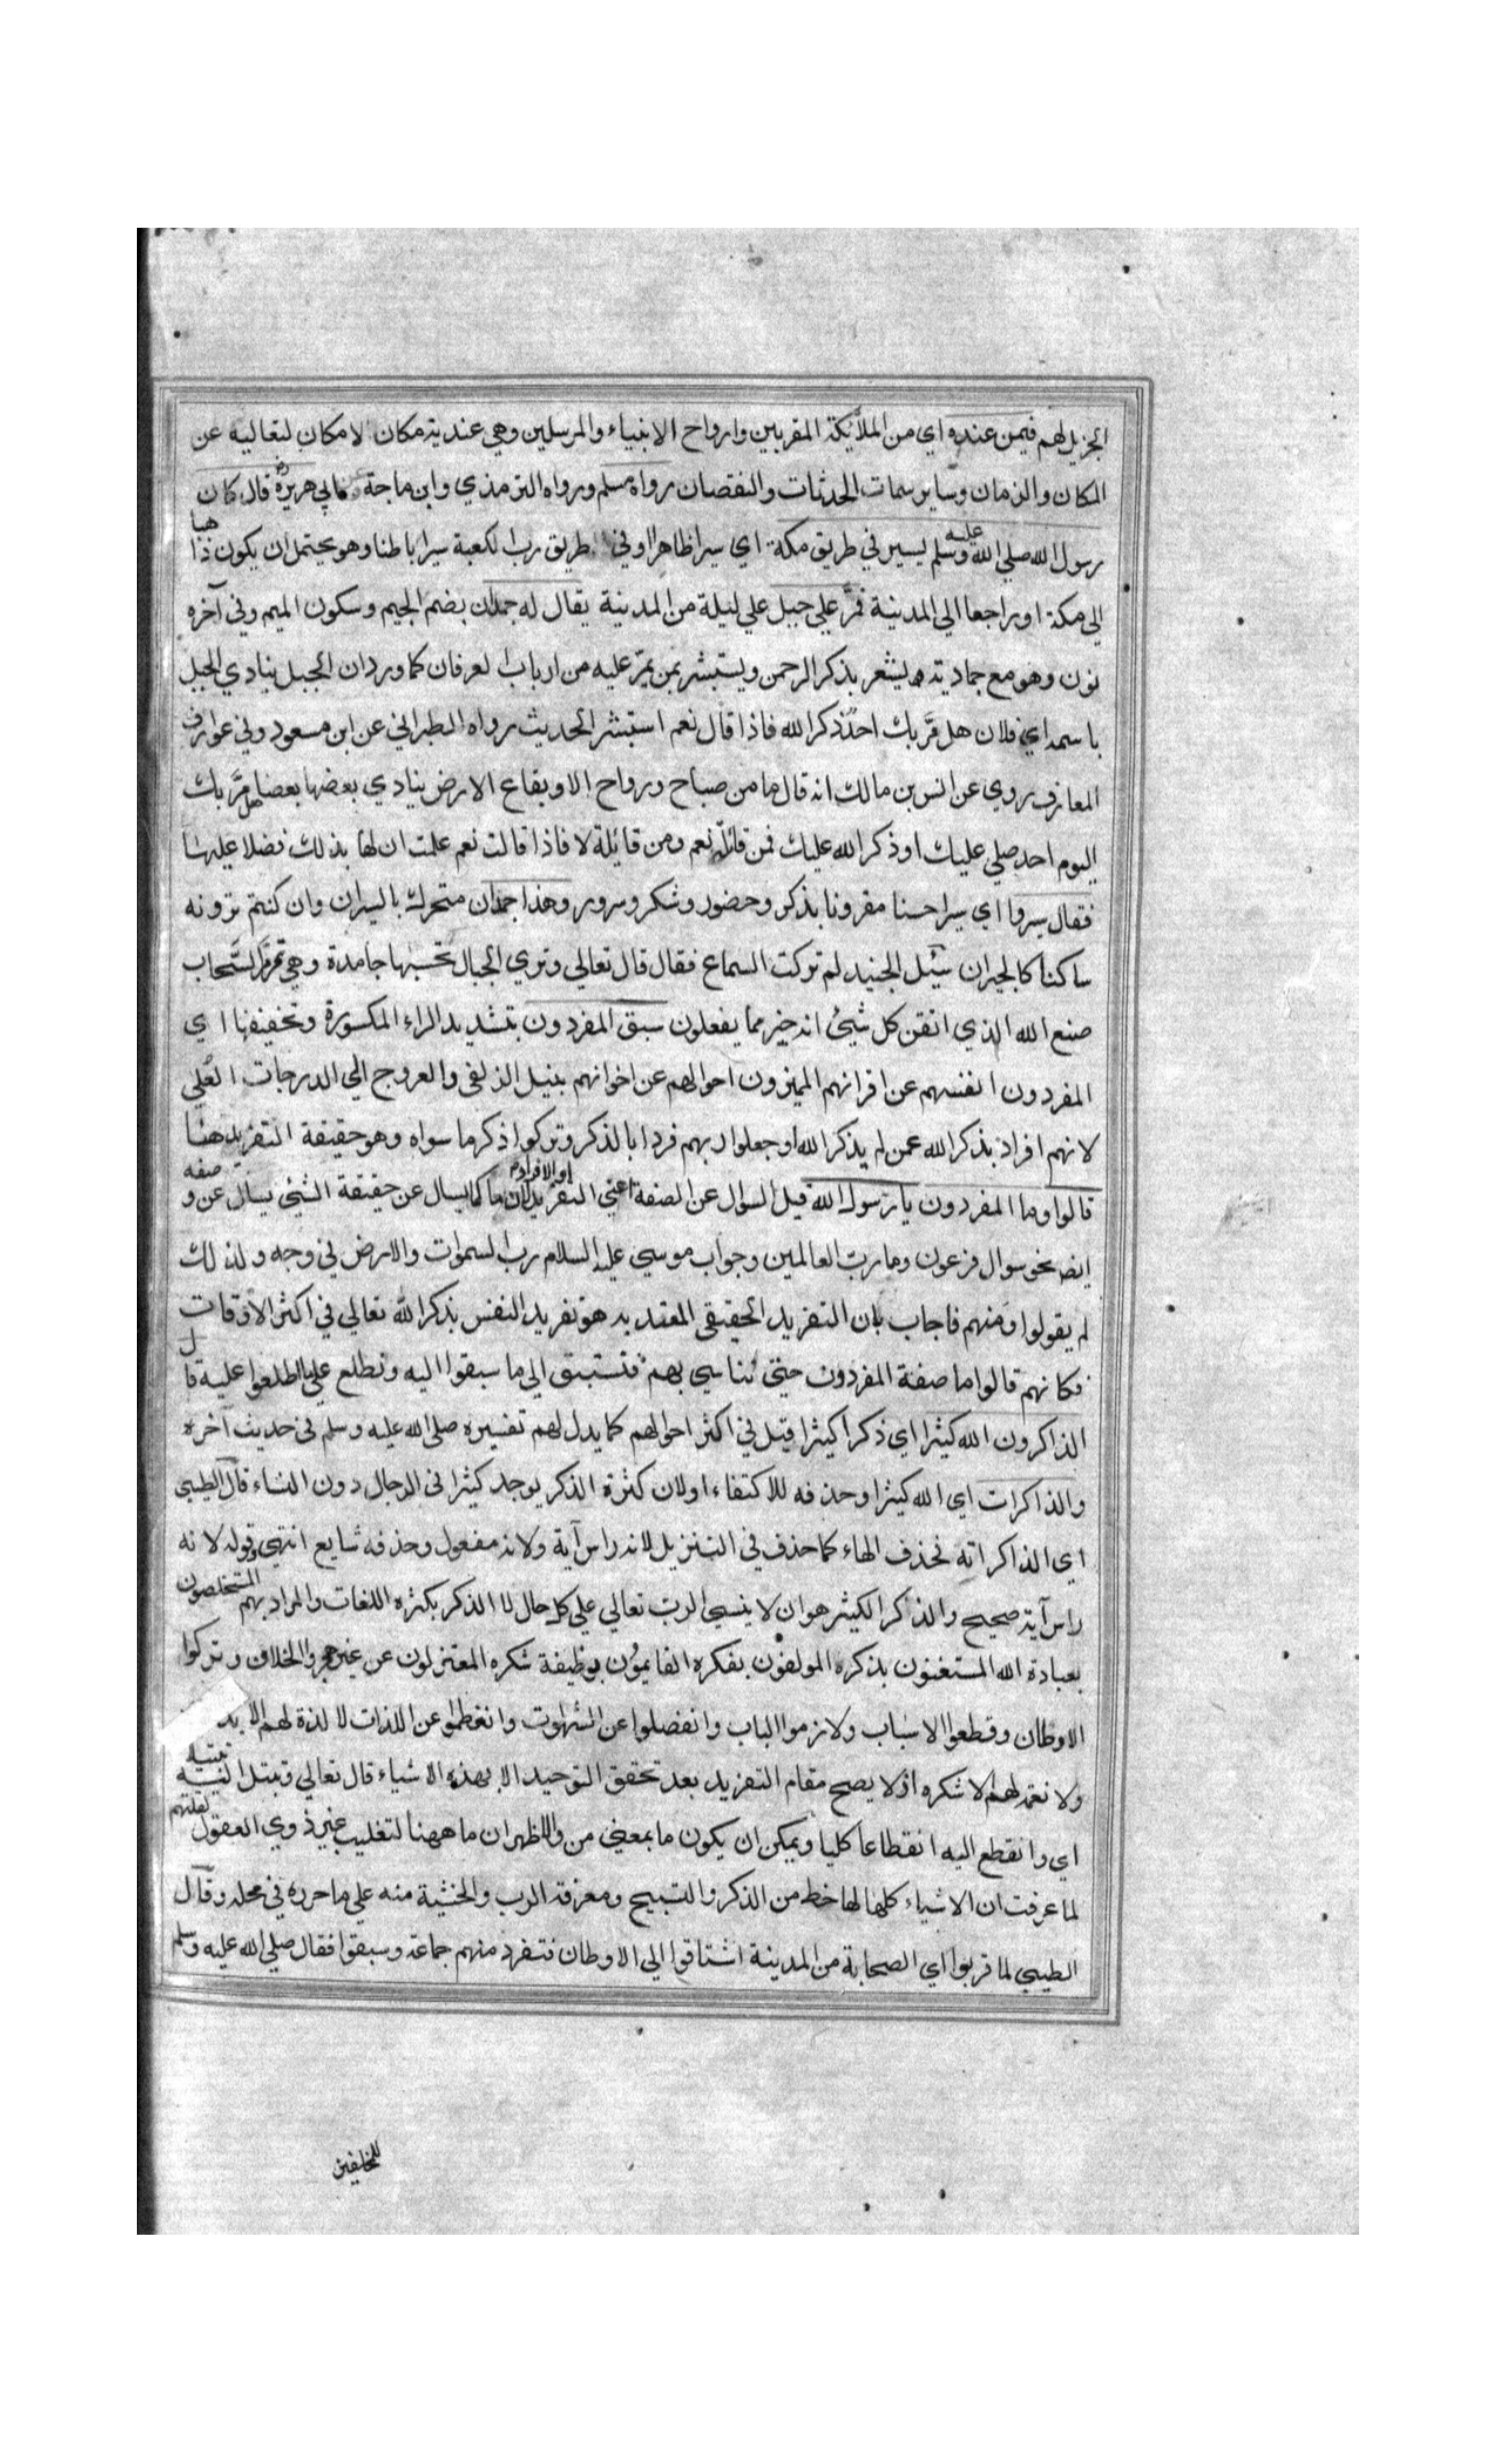 الجزيل لهم فيمن عنده اي من الملائكة المقربين وارواح الانبياء والمرسلين وهي عندية مكان لا مكان لتعاليه عن
المكان والزمان وساير سمات الحدثات والنقصان رواه مسلم ورواه الترمذي وابن ماجة ابي هريرة قال كان
رسول الله صلي الله عليه وسلم يسير في طريق مكة اي سيرا ظاهرا وفي طريق رب الكعبة سيرا باطنا وهو يحتمل ان يكون ذاهبا
الي مكة او راجعا الي المدينة فمر علي جبل علي ليلة من المدينة يقال له جمدان بضم الجيم وسكون الميم وفي آخره
نون وهو مع جماديته يشعر بذكر الرحمن ويستبشر بمن يمر عليه من ارباب العرفان كما ورد ان الجبل ينادي الجبل
باسمه اي فلان هل مر بك احد ذكر الله فاذا قال نعم استبشر الحديث رواه الطبراني عن ابن مسعود وفي عوارف
المعارف روي عن انس بن مالك انه قال ما من صباح ورواح الا وبقاع الارض ينادي بعضها بعضا هل مر بك
اليوم احد صلي عليك او ذكر الله عليك فمن قائلة نعم ومن قائلة لا فاذا قالت نعم علمت ان لها بذلك فضلا عليها
فقال سيروا اي سيرا حسنا مقرونا بذكر وحضور وشكر وسرور وهذا جمدان متحرك بالسيران وان كنتم ترونه
ساكنا كالحيران سئل الجنيد لم تركت السماع فقال قال تعالي وتري الجبال تحسبها جامدة وهي تمر مر السحاب
صنع الله الذي اتقن كل شيئ انه خبير مما يفعلون سبق المفردون بتشديد الراء المكسورة وتخفيفها اي
المفردون انفسهم عن اقرانهم المميزون احوالهم عن اخوانهم بنيل الزلفي والعروج الي الدرجات العلي
لانهم افراد بذكر الله عمن لم يذكر الله او جعلوا ربهم فردا بالذكر وتركوا ذكر ما سواه وهو حقيقة التفريد هنا
قالوا وما المفردون يا رسول الله قيل السؤال عن الصفة اعني التفريد او الافراد لان ما كما يسال عن حقيقة الشيئ يسال عن وصفه
ايضا نحو سوال فرعون وما رب العالمين وجواب موسي عليه السلام رب السموات والارض في وجه ولذلك
لم يقولوا ومنهم فاجاب بان التفريد الحقيقي المعتد به هو تفريد النفس بذكر الله تعالي في اكثر الاوقات
فكانهم قالوا ما صفة المفردون حتي نتاسي بهم فنستبق الي ما سبقوا اليه ونطلع علي ما اطلعوا عليه قال
الذاكرون الله كثيرا اي ذكرا كثيرا قيل في اكثر احوالهم كما يدل لهم تفسيره صلي الله عليه وسلم في حديث آخره
والذاكرات اي الله كثيرا وحذفه للاكتفاء او لان كثرة الذكر يوجد كثيرا في الرجال دون النساء قال الطيبي
اي الذاكراته فحذف الهاء كما حذف في التنزيل لانه راس آية ولانه مفعول وحذفه شايع انتهي وقوله لانه
راس آية صحيح والذاكر الكثير هو ان لا ينسي الرب تعالي علي كل حال لا الذكر بكثره اللغات والمراد بهم المستخلصون
بعبادة الله المستغنون بذكره المولفون بفكره القايمون بوظيفة شكره المعتزلون عن غيره هجروا الخلاف وتركوا
الاوطان وقطعوا الاسباب ولازموا الباب وانفصلوا عن الشهوت وانفطموا عن اللذات لا لذة لهم الا
ولا نعمة لهم الا شكره اذ لا يصح مقام التفريد بعد تحقق التوحيد الا بهذه الاشياء قال تعالي وتبتل اليه تبتيلا
اي وانقطع اليه انقطاعا كليا ويمكن ان يكون ما بمعني من والاظهر ان ما ههنا لتغليب غير ذوي العقول لقلتهم
لما عرفت ان الاشياء كلها لها حظ من الذكر والتسبيح ومعرفة الرب والخشية منه علي ما حرره في محله وقال
الطيبي لما قربوا اي الصحابة من المدينة اشتاقوا الي الاوطان فتفرد منهم جماعة وسبقوا فقال صلي الله عليه وسلم
للمخلفين